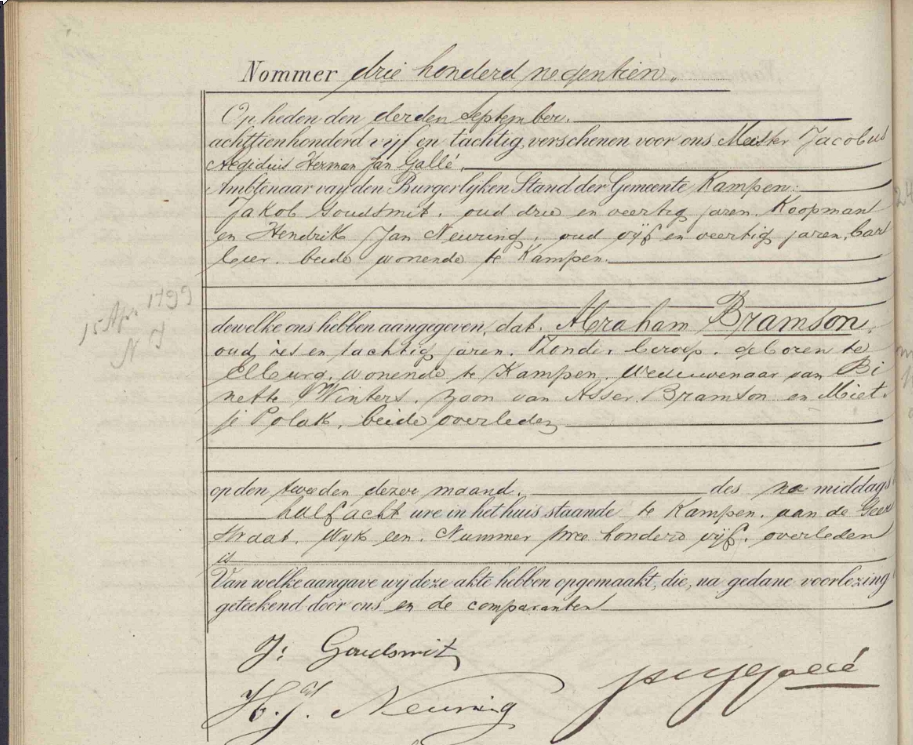 Nommer drie honderd negentien.
Op heden den derden September
achttienhonderd vijf en tachtig, verschenen voor ons Meester Jacobus
Aegidius Herman Jan Gallé,
Ambtenaar van den Burgerlijken Stand der Gemeente Kampen:
Jakob Goudsmit, oud drie en veertig jaren, Koopman
en Hendrik Jan Neuring, oud vijf en veertig jaren, bar
bier, beide wonende te Kampen.
dewelke ons hebben aangegeven, dat Abraham Bramson,
oud zes en tachtig jaren, zonder beroep, geboren te
Elburg, wonende te Kampen, weduwenaar van Bi
nette Winters, zoon van Asser Bramson en Miet
je Polak, beide overleden
15 Apr 1799
op den tweeden dezer maand, des na middags
half acht ure in het huis staande te Kampen, aan de Geer
straat, Wijk een, Nummer twee honderd vijf, overleden
is
Van welke aangave wij deze akte hebben opgemaakt, die, na gedane voorlezing
geteekend door ons en de comparanten
J: Goudsmit
H. J. Neuring